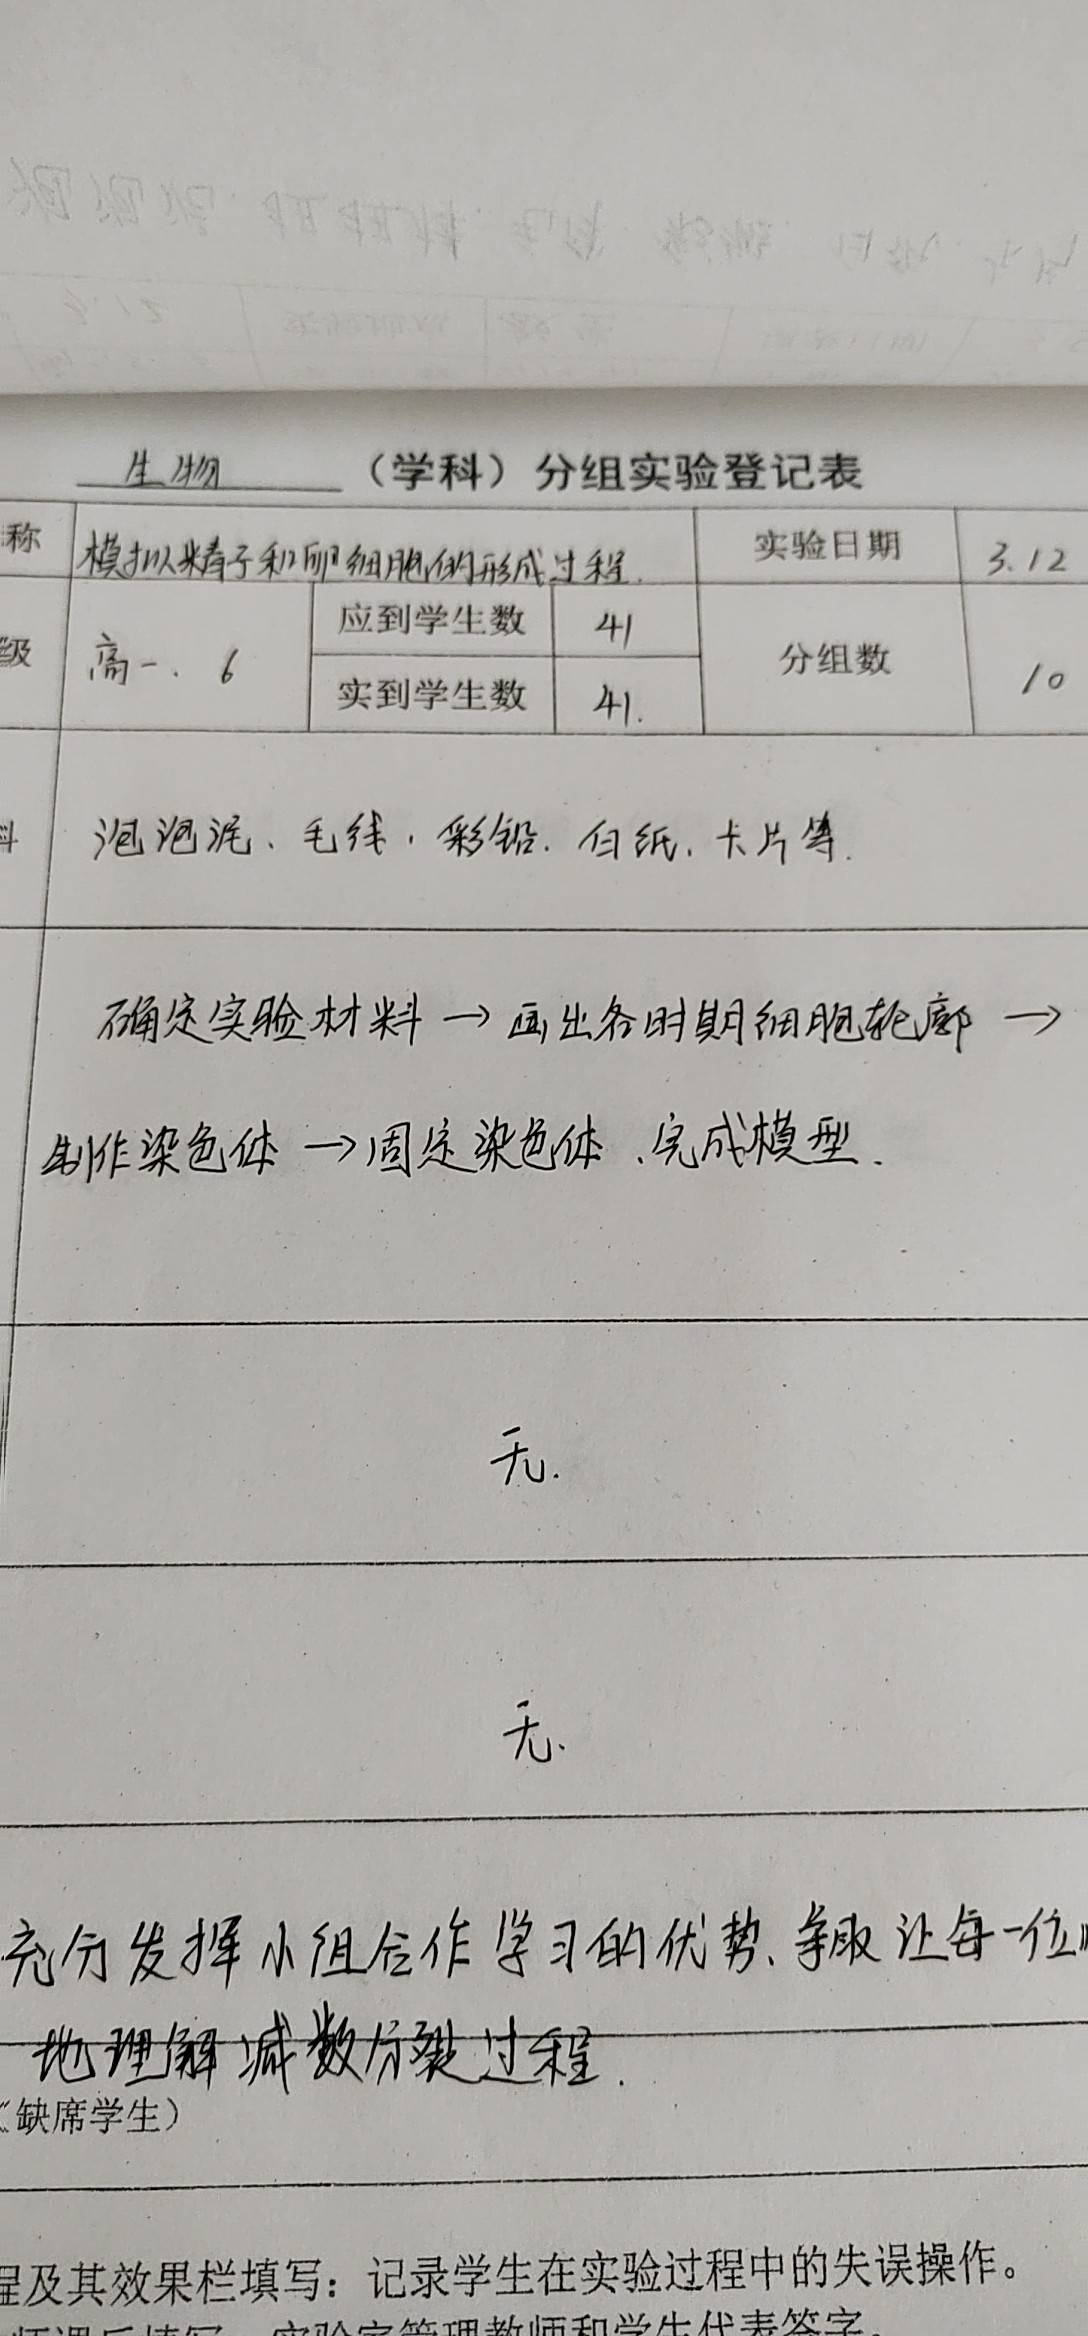 生物（学科）分组实验登记表
称 模拟精子和卵细胞的形成过程. 实验日期 3.12
级 高一.6 应到学生数 41 分组数 10
实到学生数 41.
料 泡泡泥、毛线,彩铅.白纸.卡片等.
确定实验材料→画出各时期细胞轮廓→
制作染色体→固定染色体.完成模型.
无.
无.
充分发挥小组合作学习的优势、争取让每一位
地理解减数分裂过程.
（缺席学生）
程及其效果栏填写：记录学生在实验过程中的失误操作。
师课后填写，实验室管理教师和学生代表签字。